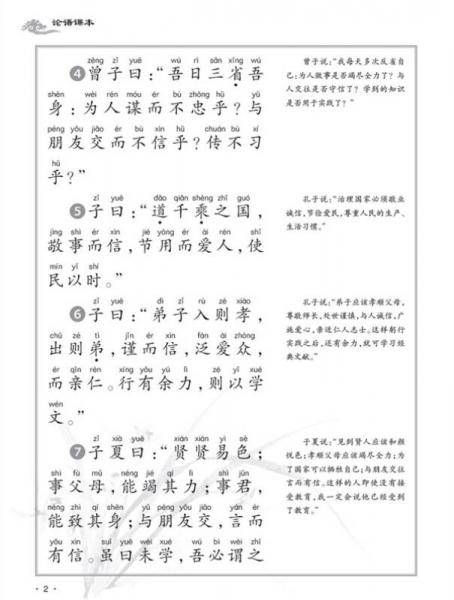 论语课本
zēng zǐ yuē wú rì sān xǐng wú
④曾子曰：“吾日三省吾
shēn wèi rén móu ér bù zhōng hū yǔ
身：为人谋而不忠乎？与
péng yǒu jiāo ér bù xìn hū chuán bù xí
朋友交而不信乎？传不习
hū
乎？”
曾子说：“我每天多次反省自
己：为人做事是否竭尽全力了？与
人交往是否守信了？学到的知识
是否用于实践了？”
zǐ yuē dǎo qiān shèng zhī guó
⑤子曰：“道千乘之国，
jìng shì ér xìn jié yòng ér ài rén shǐ
敬事而信，节用而爱人，使
mín yǐ shí
民以时。”
孔子说：“治理国家必须敬业
诚信，节俭爱民，尊重人民的生产、
生活习惯。”
zǐ yuē dì zǐ rù zé xiào
⑥子曰：“弟子入则孝，
chū zé tì jǐn ér xìn fàn ài zhòng
出则弟，谨而信，泛爱众，
ér qīn rén xíng yǒu yú lì zé yǐ xué
而亲仁。行有余力，则以学
wén
文。”
孔子说：“弟子应该孝顺父母，
尊敬师长，处世谨慎，与人诚信，广
施爱心，亲近仁人志士。这样躬行
实践之后，还有余力，就可学习经
典文献。”
zǐ xià yuē xián xián yì sè
⑦子夏曰：“贤贤易色；
shì fù mǔ néng jié qí lì shì jūn
事父母，能竭其力；事君，
néng zhì qí shēn yǔ péng yǒu jiāo yán ér
能致其身；与朋友交，言而
yǒu xìn suī yuē wèi xué wú bì wèi zhī
有信。虽曰未学，吾必谓之
子夏说：“见到贤人应该和颜
悦色；孝顺父母应该竭尽全力；为
了国家可以牺牲自己；与朋友交往
言而有信。这样的人即使没有接
受教育，我一定会说他已经受到
了教育。”
·2·